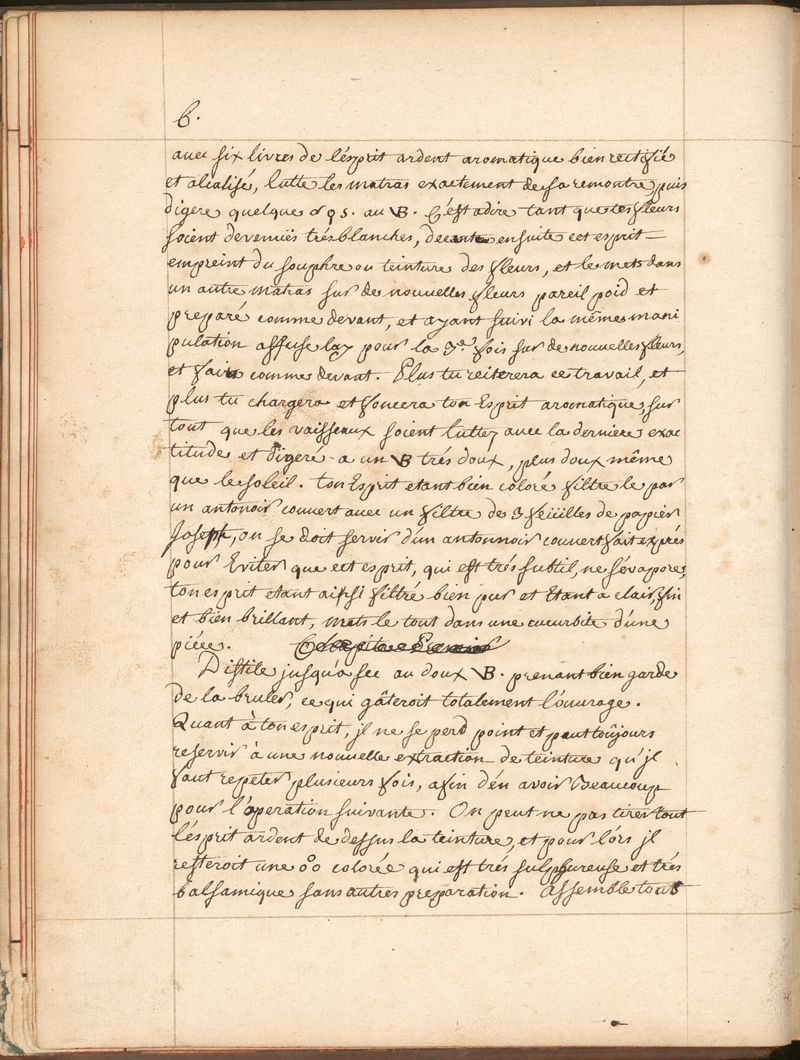 6.
avec six livres de l'ésprit ardent aromatique bien rectifié
et alcalisé, lutte les matras exactement de sa remontre, puis
digere quelque au B. c'est adire tant que tes fleurs
soient devenuës trés blanches, decante ensuite cet esprit
empreint du souphre ou teinture des fleurs, et le mets dans
un autre matras sur de nouvelles fleurs pareil poid et
preparé comme devant, et ayant suivi la même mani
pulation affuse la pour la 3.e fois sur de nouvelles fleurs,
et fait comme devant. Plus tu reiterera ce travail, et
plus tu chargera et foncera ton Esprit aromatique, sur
tout que les vaisseaux soient luttez avec la derniere exac
titude et digeré a un B trés doux, plus doux même
que le soleil. ton Esprit etant bien coloré filtre le par
un antonoir couvert avec un filtre de 3 feüilles de papier
Joseph, on se doit servir d'un antonnoir couvert fait exprés
pour Eviter que cet esprit, qui est trés subtil, ne s'évapore,
ton esprit etant aissi filtré bien pur et Etant a clair, fin
et bien brillant, mets le tout dans une cucurbite d'une
piéce. Chapitre Premier
Distile jusqu'a sec au doux B. prenant bien garde
de la bruler, ce qui gâteroit totalement l'ouvrage.
Quant à ton esprit, jl ne se perd point et peut toûjours
reservir à une nouvelle extraction de teinture qu'jl
faut repeter plusieurs fois, afin d'én avoir Beaucoup
pour l'operation suivante. On peut ne pas tirer tout
l'ésprit ardent de dessus la teinture, et pour lórs jl
resteroit une colorée qui est trés sulphureuse et trés
balsamique sans autres preparation. Assemble tout